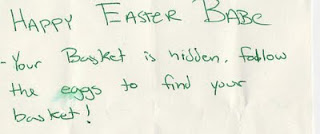 HAPPY EASTER BABE
- Your Basket is hidden, follow
the eggs to find your
basket!